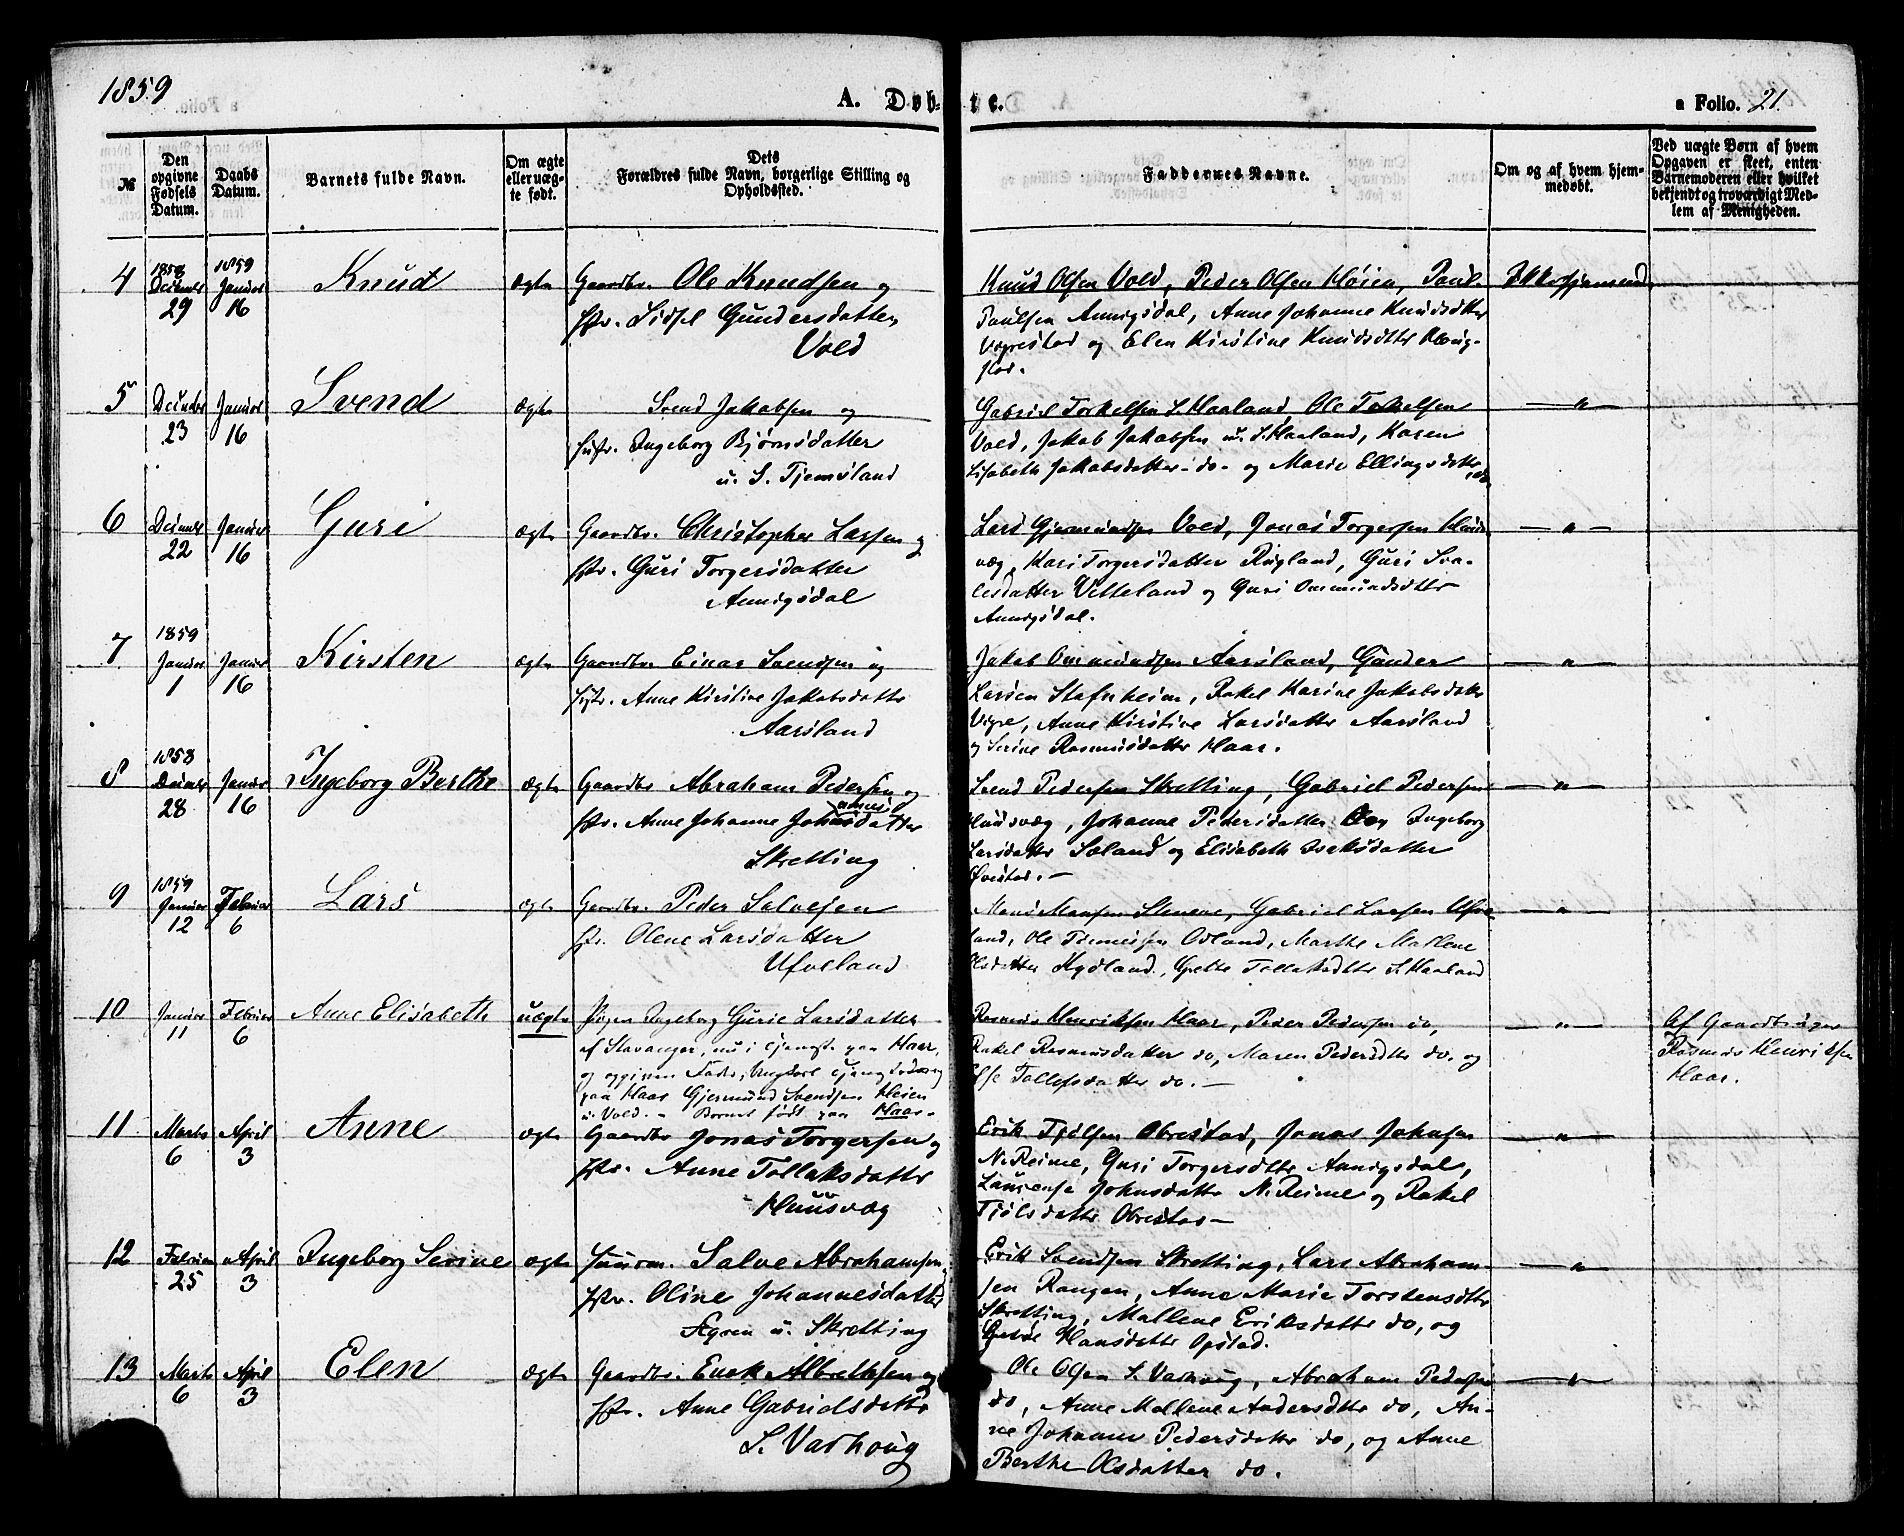 1859
A. Døb-
te.
a Folio. 21.
№
Den opgivne Fødsels Datum.
Daabs Datum.
Barnets fulde Navn.
Om ægte eller uægte født.
Dets Forældres fulde Navn, borgerlige Stilling og Opholdssted.
Faddernes Navne.
Om og af hvem hjemmedøbt.
Ved uægte Børn af hvem Opgaven er skeet, enten Barnemoderen eller hvilket bekjendt og troværdigt Medlem af Menigheden.
4 1858 29 1859 Januar 16 Knud ægte Gaardbr. Ole Knudsen og
Sidsel Gundersdatter
Vold
Knud Olsen Vold, Peder Olsen Høien, Paul
Paulsen Annigsdal, Anne Johanne Knudsdtter
og Elen Kirstine Knudsdtter
5 23 Januar 16 Svend ægte Svend Jakobsen og
Ingeborg Bjørnsdatter
u. S. Tjemsland
Gabriel Torkelsen S. Haaland, Ole Torkelsen
Vold, Jakob Jakobsen u. S. Haaland, Karen
Lisabeth Jakobsdatter do. og Marie Ellingsdatter do
6 22 Januar 16 Guri ægte Gaardbr. Christopher Larsen og
Guri Torgersdatter
Annigsdal
Lars Gjermundsen Vold, Jonas Torgersen Huus-
væg, Kari Torgersdatter Rugland, Guri Sva-
lesdatter Vetteland og Guri Ommundsdtter
Annigsdal.
7 1859 Januar 1 Januar 16 Kirsten ægte Gaardbr. Einar Svendsen og
Anne Kirstine Jakobsdatter
Aarsland
Jakob Ommundsen Aarsland, Gunder
Larsen Stafnheim, Rakel Karine Jakobsdatter
Vigre, Anne Kirstine Larsdatter Aarsland
og Serine Rasmusdatter Haar.
8 1858 28 Januar 16 Ingeborg Berthe ægte Gaardbr. Abraham Pedersen og
Anne Johanne
Skretting
Svend Pedersen Skretting, Gabriel Pedersen
Huusvæg, Johanne Pedersdatter Ingeborg
Larsdatter Søland og Elisabeth Isaksdatter
9 1859 Januar 12 Februar 6 Lars ægte Gaardbr. Peder Salvesen
Olene Larsdatter
Ufveland
Gabriel Larsen Ufve-
land, Ole Tønnessen Odland, Marthe Mallene
Olsdatter S. Haaland
10 Januar 11 Februar 6 Anne Elisabeth uægte Pigen Ingeborg Gurie Larsdatter
af Stavanger, nu i Tjeneste paa Haar,
og opgiven Fader, Ungkarl
paa Haar Gjermund Svendsen Høien
u. Vold. - Barnet født paa Haar.
Rasmus Henriksen Haar, Peder Pedersen do,
Rakel Rasmusdatter do, Maren Pedersdtter do. og
Tollefsdatter do. -
Af Gaardbruger
Rasmus Henriksen
Haar.
11 Marts 6 April 3 Anne ægte Gaardbr. Jonas Torgersen og
Anne Tollaksdatter
Huusvæg
Erik Tjølsen Obrestad, Jonas Johnsen
N. Reime, Guri Torgersdtter Annigsdal,
Johnsdatter N. Reime og Rakel
Tjølsdatter Obrestad -
12 Februar 25 April 3 Ingeborg Serine ægte Huusm. Salve Abrahamsen,
Oline Johannesdatter
u. Skretting
Erik Svendsen Skretting, Lars Abraham-
sen Rangen, Anne Marie Torstensdtter
Skretting, Mallene Eriksdatter do, og
Hansdatter Opstad.
13 Marts 6 April 3 Elen ægte Gaardbr. Enok Albretsen og
Anne Gabrielsdatter
S. Varhoug
Ole Olsen S. Varhoug, Abraham Pedersen
do, Anne Mallene Andersdtter do, An-
ne Johanne Pedersdatter do, og Anne
Berthe Olsdatter do.